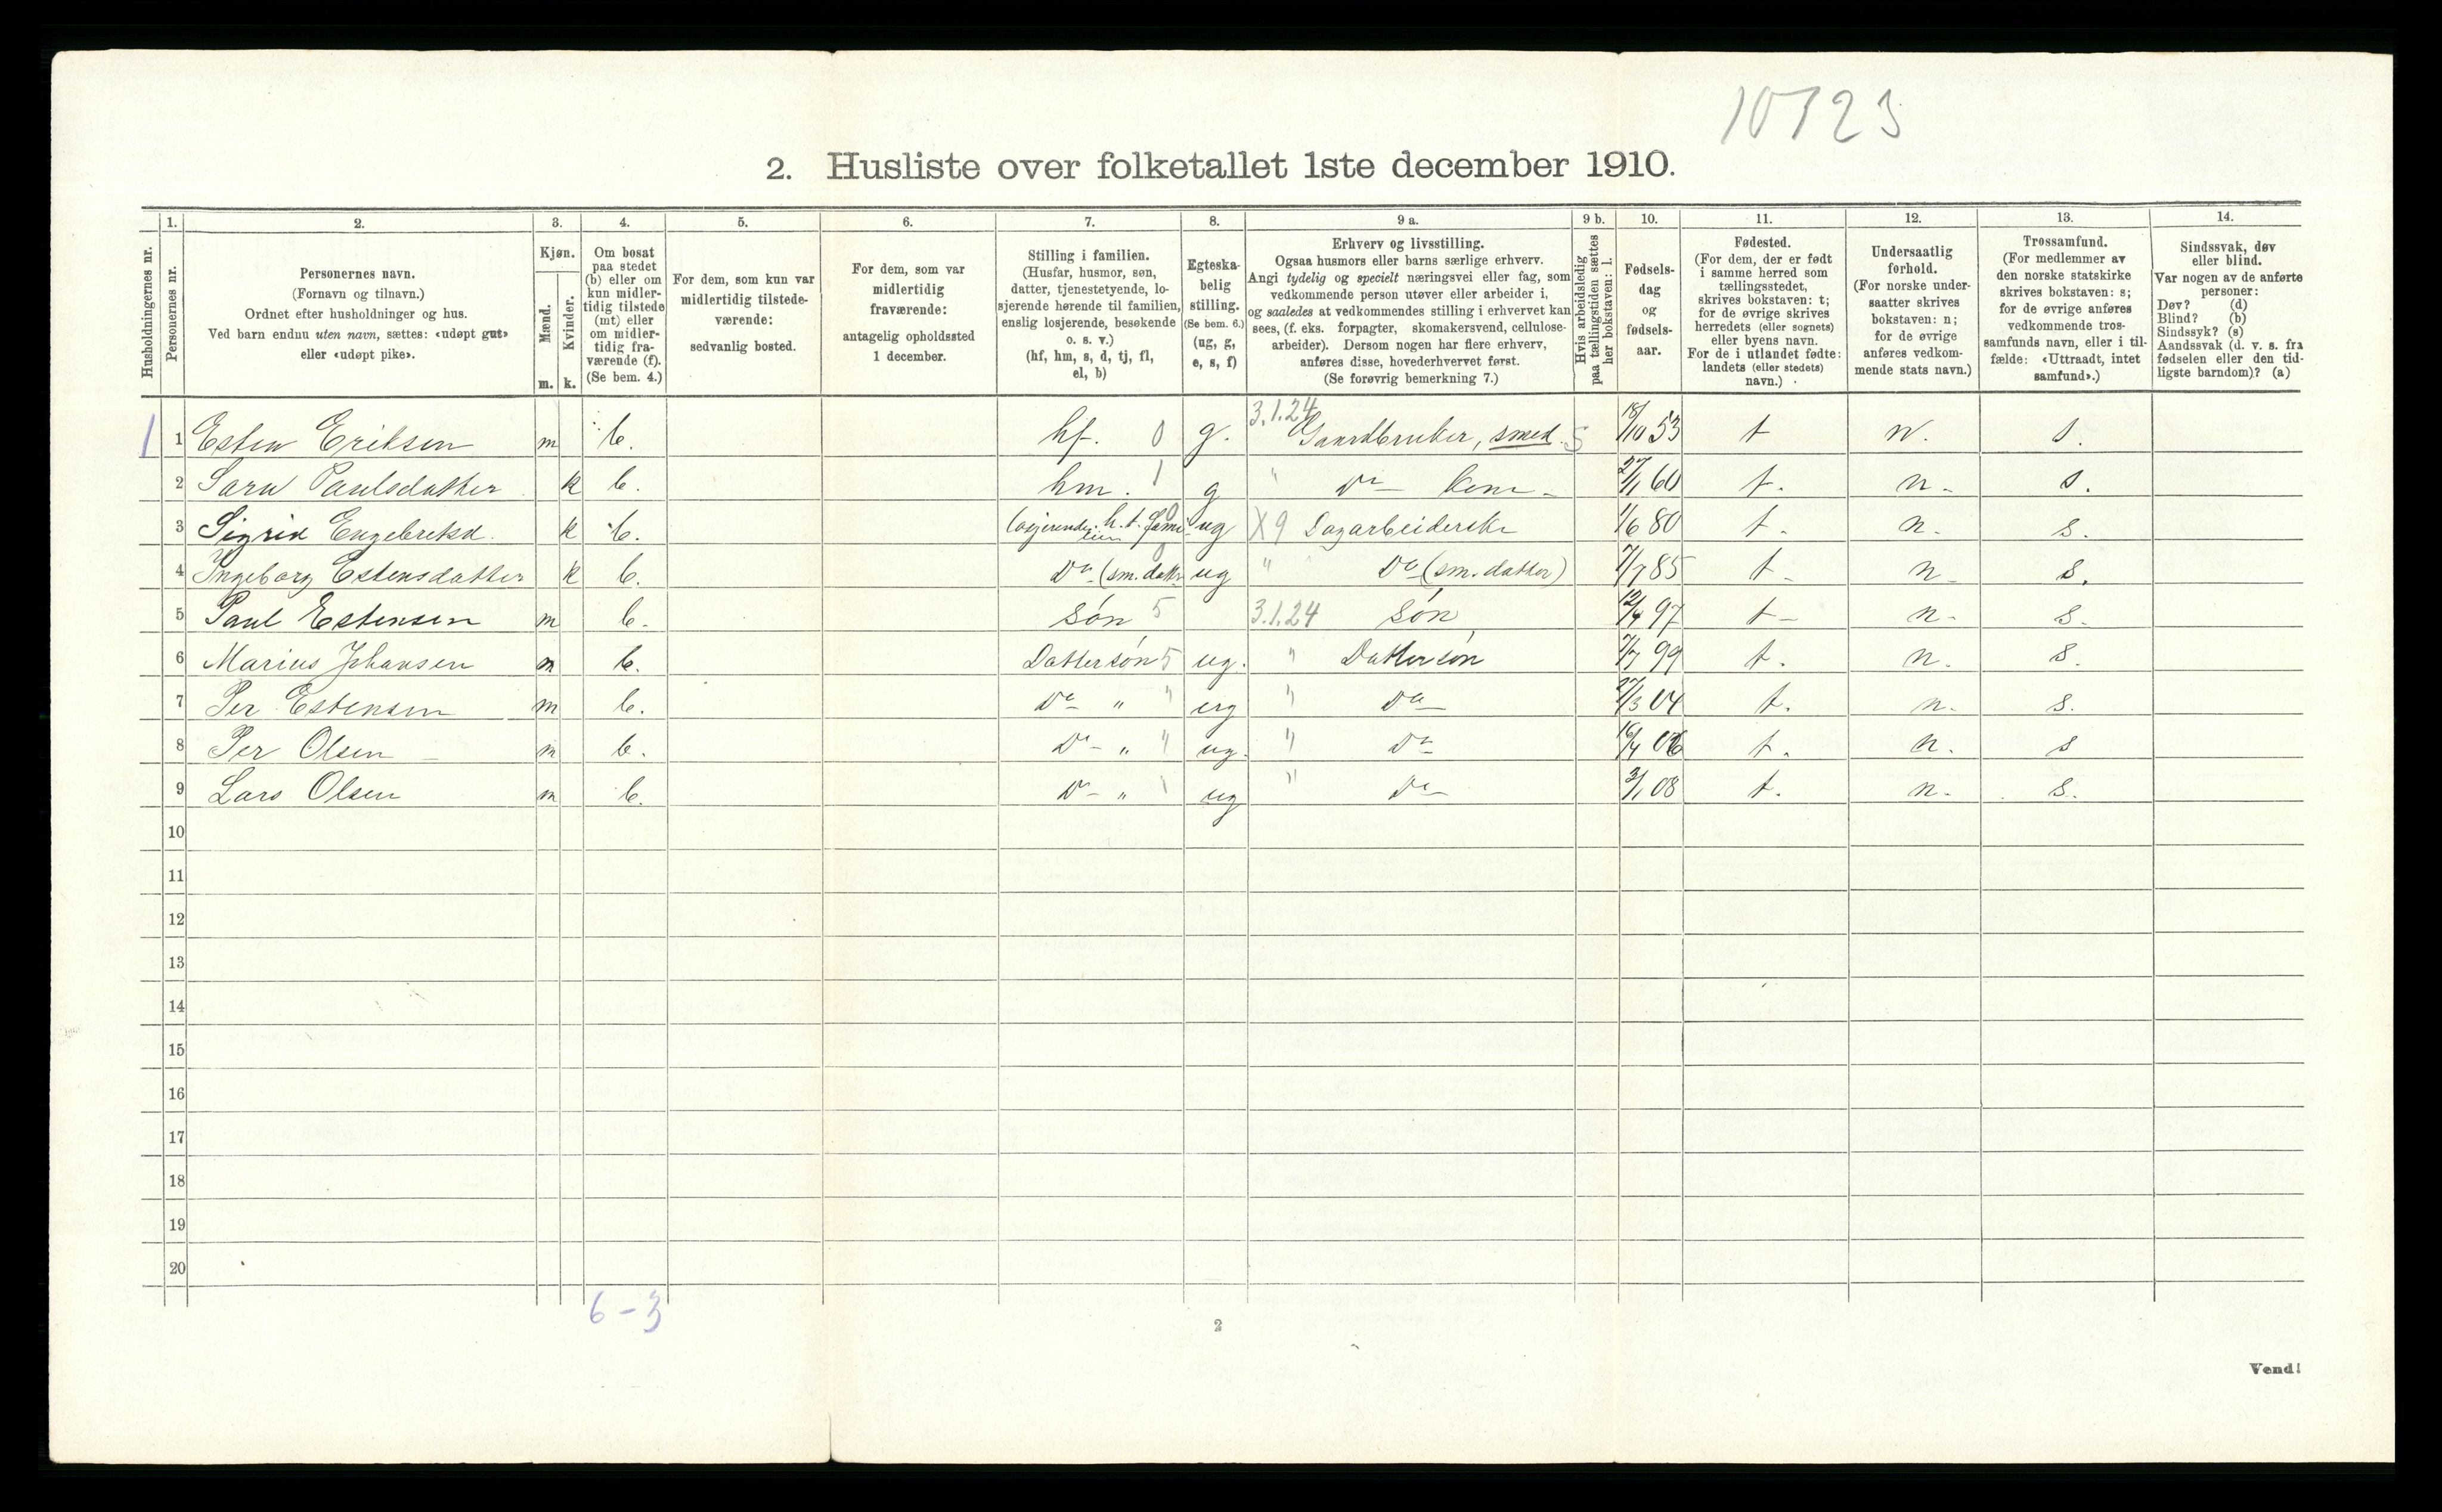 10723
2. Husliste over folketallet 1ste december 1910.
1. 2. 3. 4. 5. 6. 7. 8. 9 a. 9 b. 10. 11. 12. 13. 14.
Husholdningernes nr.
Personernes nr.
Personernes navn.
(Fornavn og tilnavn.)
Ordnet efter husholdninger og hus.
Ved barn endnu uten navn, sættes: «udøpt gut»
eller «udøpt pike».
Kjøn.
Mænd.
Kvinder.
m. k.
Om bosat
paa stedet
(b) eller om
kun midler-
tidig tilstede
(mt) eller
om midler-
tidig fra-
værende (f).
(Se bem. 4.)
For dem, som kun var
midlertidig tilstede-
værende:
sedvanlig bosted.
For dem, som var
midlertidig
fraværende:
antagelig opholdssted
1 december.
Stilling i familien.
(Husfar, husmor, søn,
datter, tjenestetyende, lo-
sjerende hørende til familien,
enslig losjerende, besøkende
o. s. v.)
(hf, hm, s, d, tj, fl,
el, b)
Egteska-
belig
stilling.
(Se bem. 6.)
(ug, g,
e, s, f)
Erhverv og livsstilling.
Ogsaa husmors eller barns særlige erhverv.
Angi tydelig og specielt næringsvei eller fag, som
vedkommende person utøver eller arbeider i,
og saaledes at vedkommendes stilling i erhvervet kan
sees, (f. eks. forpagter, skomakersvend, cellulose-
arbeider). Dersom nogen har flere erhverv,
anføres disse, hovederhvervet først.
(Se forøvrig bemerkning 7.)
Hvis arbeidsledig
paa tællingstiden sættes
her bokstaven: l.
Fødsels-
dag
og
fødsels-
aar.
Fødested.
(For dem, der er født
i samme herred som
tællingsstedet,
skrives bokstaven: t;
for de øvrige skrives
herredets (eller sognets)
eller byens navn.
For de i utlandet fødte:
landets (eller stedets)
navn.)
Undersaatlig
forhold.
(For norske under-
saatter skrives
bokstaven: n;
for de øvrige
anføres vedkom-
mende stats navn.)
Trossamfund.
(For medlemmer av
den norske statskirke
skrives bokstaven: s;
for de øvrige anføres
vedkommende tros-
samfunds navn, eller i til-
fælde: «Uttraadt, intet
samfund».)
Sindssvak, døv
eller blind.
Var nogen av de anførte
personer:
Døv? (d)
Blind? (b)
Sindssyk? (s)
Aandssvak (d. v. s. fra
fødselen eller den tid-
ligste barndom)? (a)
1 1 Esten Eriksen m b. hf. 0 g. 3.1.24 Gaardbruker, smed. S 18/10 53 t n. s.
2 Sara Paulsdatter k b. hm. 1 g " Do 27/1 60 t. n. s.
3 Sigrid Engebretsd. k b. losjerende h. t. fami- lien 0 ug X9 Dagarbeiderske 1/6 80 t. n. s.
4 Ingeborg Estensdatter k b. Do (sm. datter ug " Do (sm. datter) 7/7 85 t. n. s.
5 Paul Estensen m b. søn 5 3.1.24 søn 12/4 97 t n. s.
6 Marius Johansen m b. Dattersøn 5 ug. " Dattersøn 7/7 99 t. n. s.
7 Per Estensen m b. Do " " ug " Do 27/3 04 t. n. s.
8 Per Olsen m b. Do " " ug. " Do 16/4 06 t. n. s
9 Lars Olsen m b. Do " " ug " Do 3/1 08 t. n. s.
10
11
12
13
14
15
16
17
18
19
20
6 - 3
2
Vend!